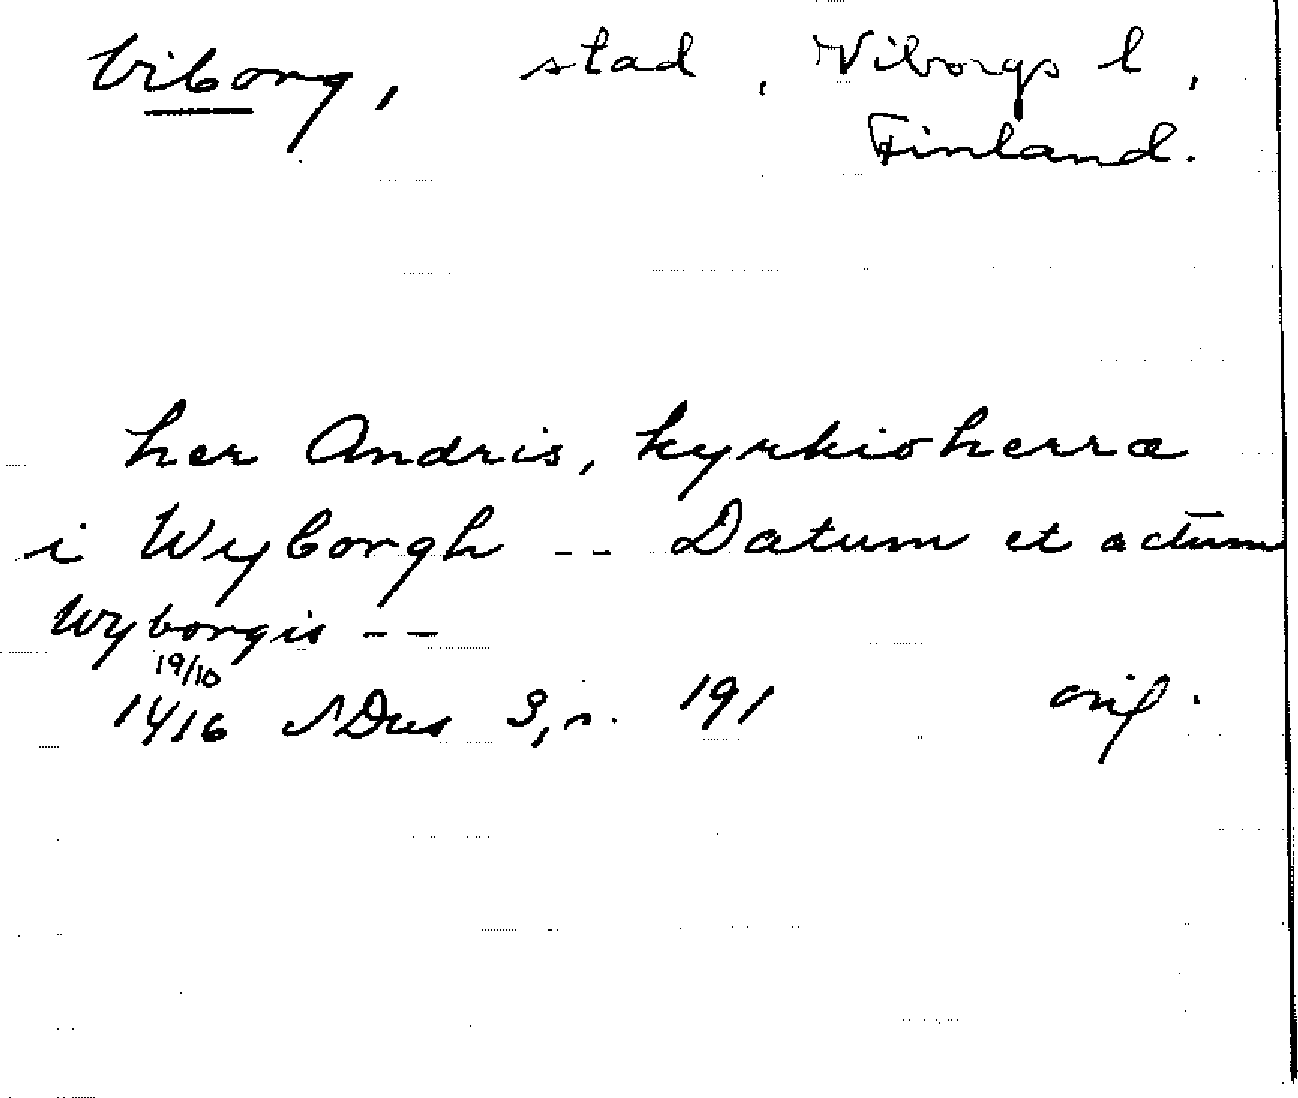 Viborg, stad, Viborgs l,
Finland.
her Andris, kyrkioherra
i Wyborgh -- Datum et actum
Wyborgis --
19/10
1416 SDns 3, s. 191 orig.